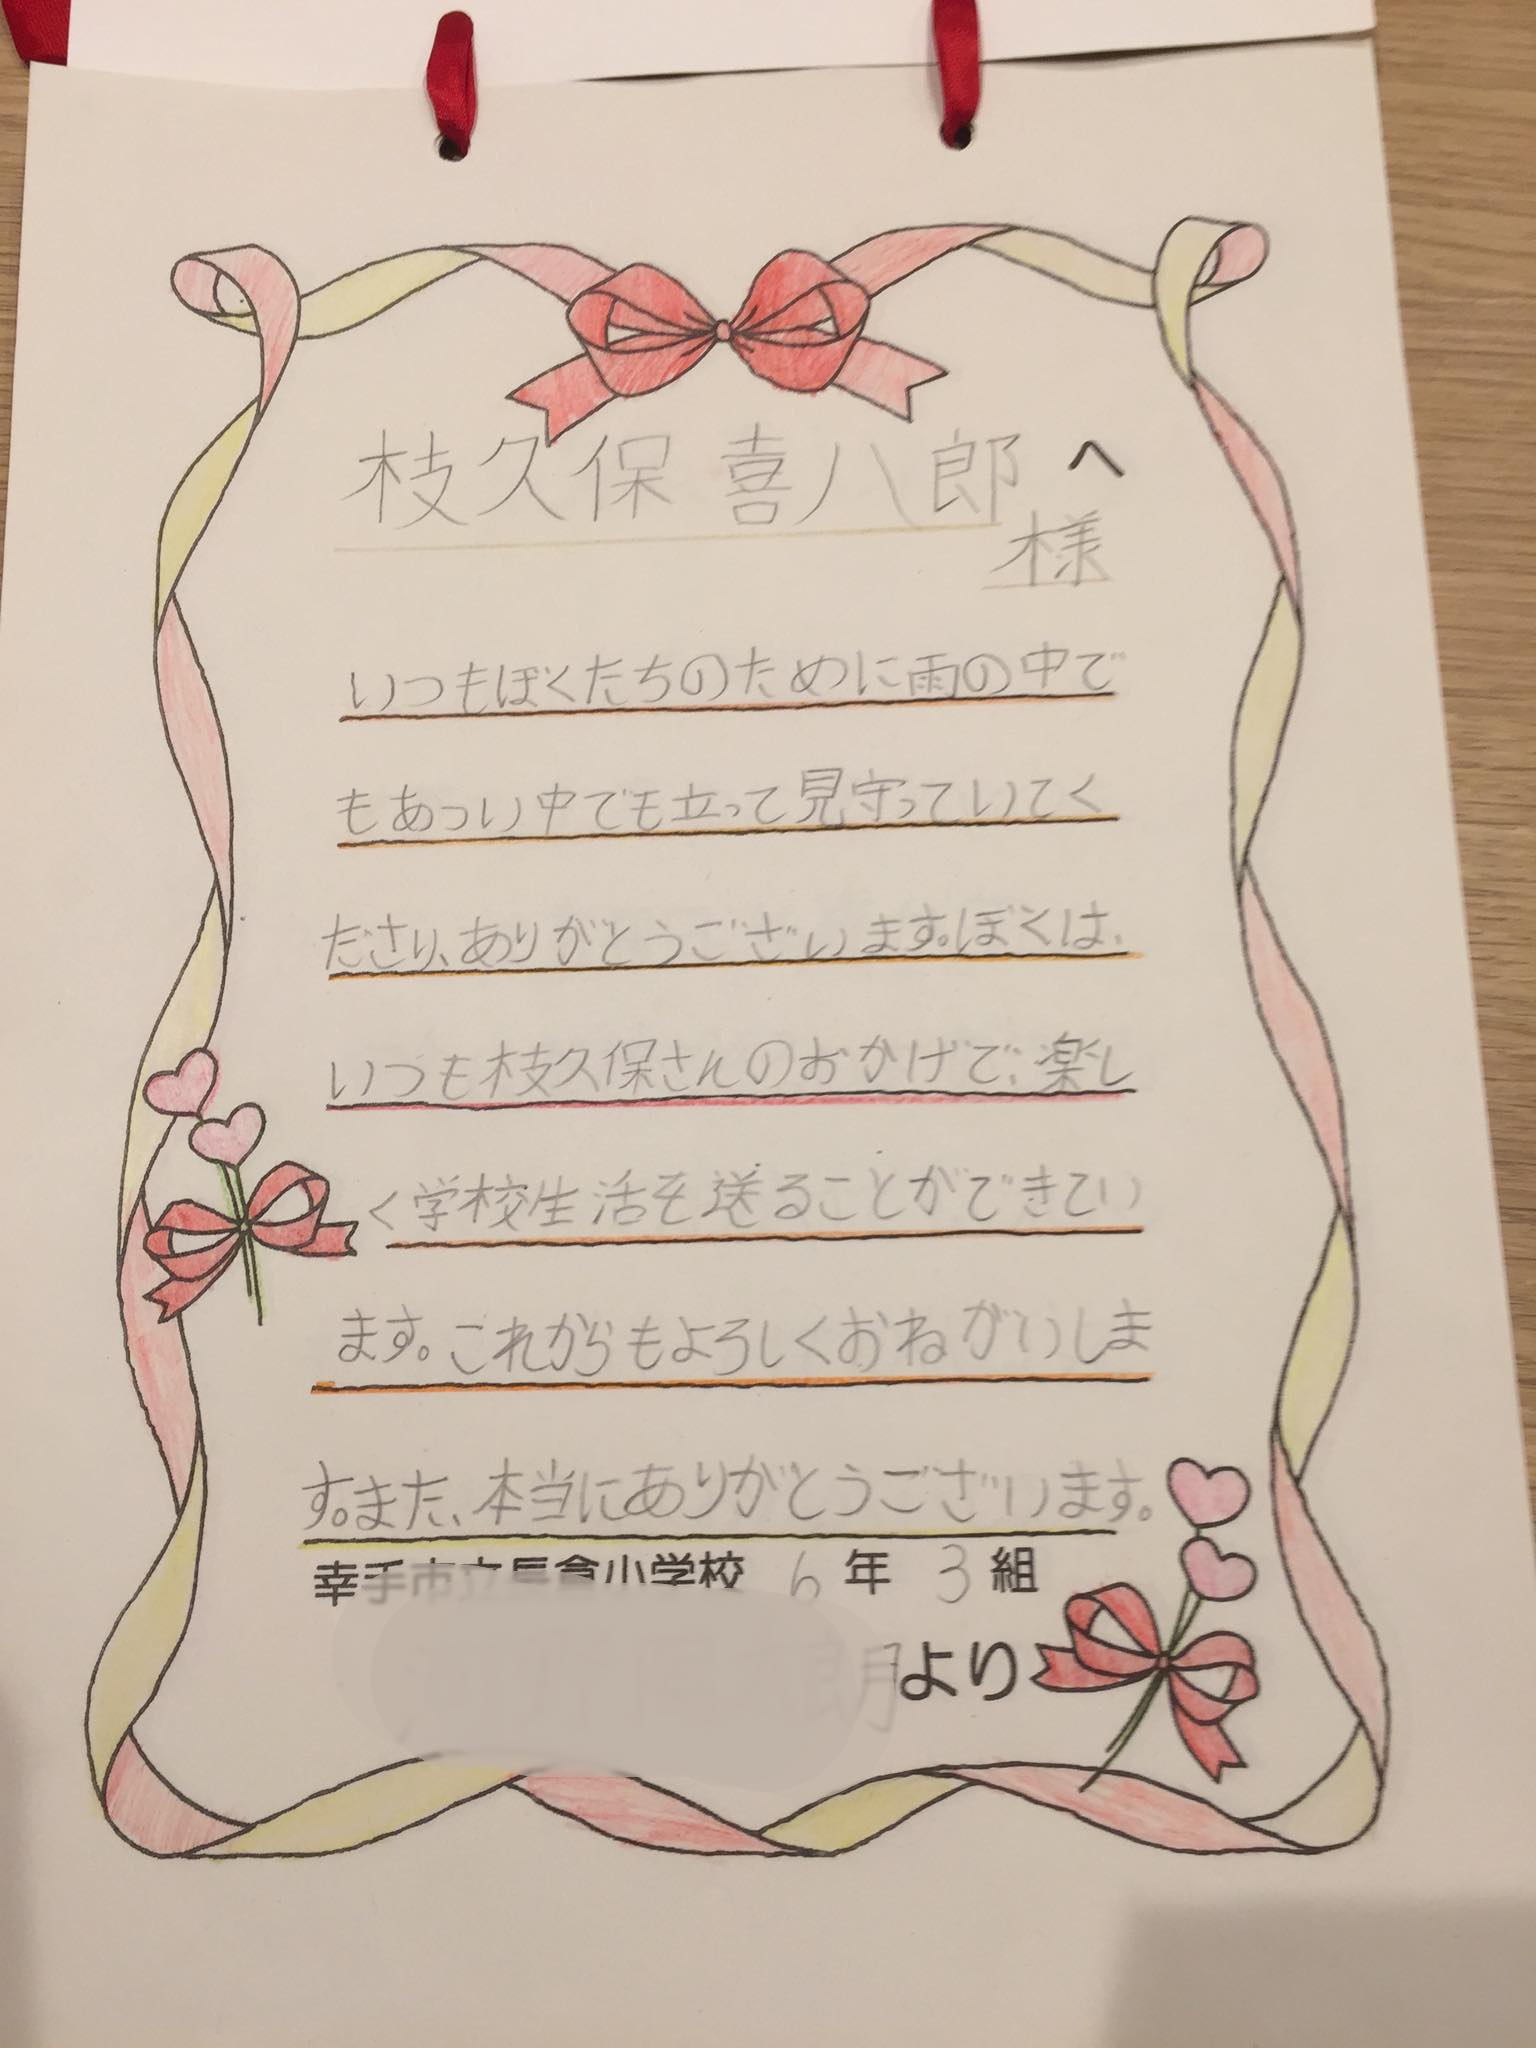 枝久保 喜八郎 へ
様
いつもぼくたちのために雨の中で
もあつい中でも立って見守っていてく
ださり、ありがとうございます。ぼくは、
いつも枝久保さんのおかげで、楽し
く学校生活を送ることができてい
ます。これからもよろしくおねがいしま
す。また、本当にありがとうございます。
幸手市立長倉小学校 6 年 3 組
より